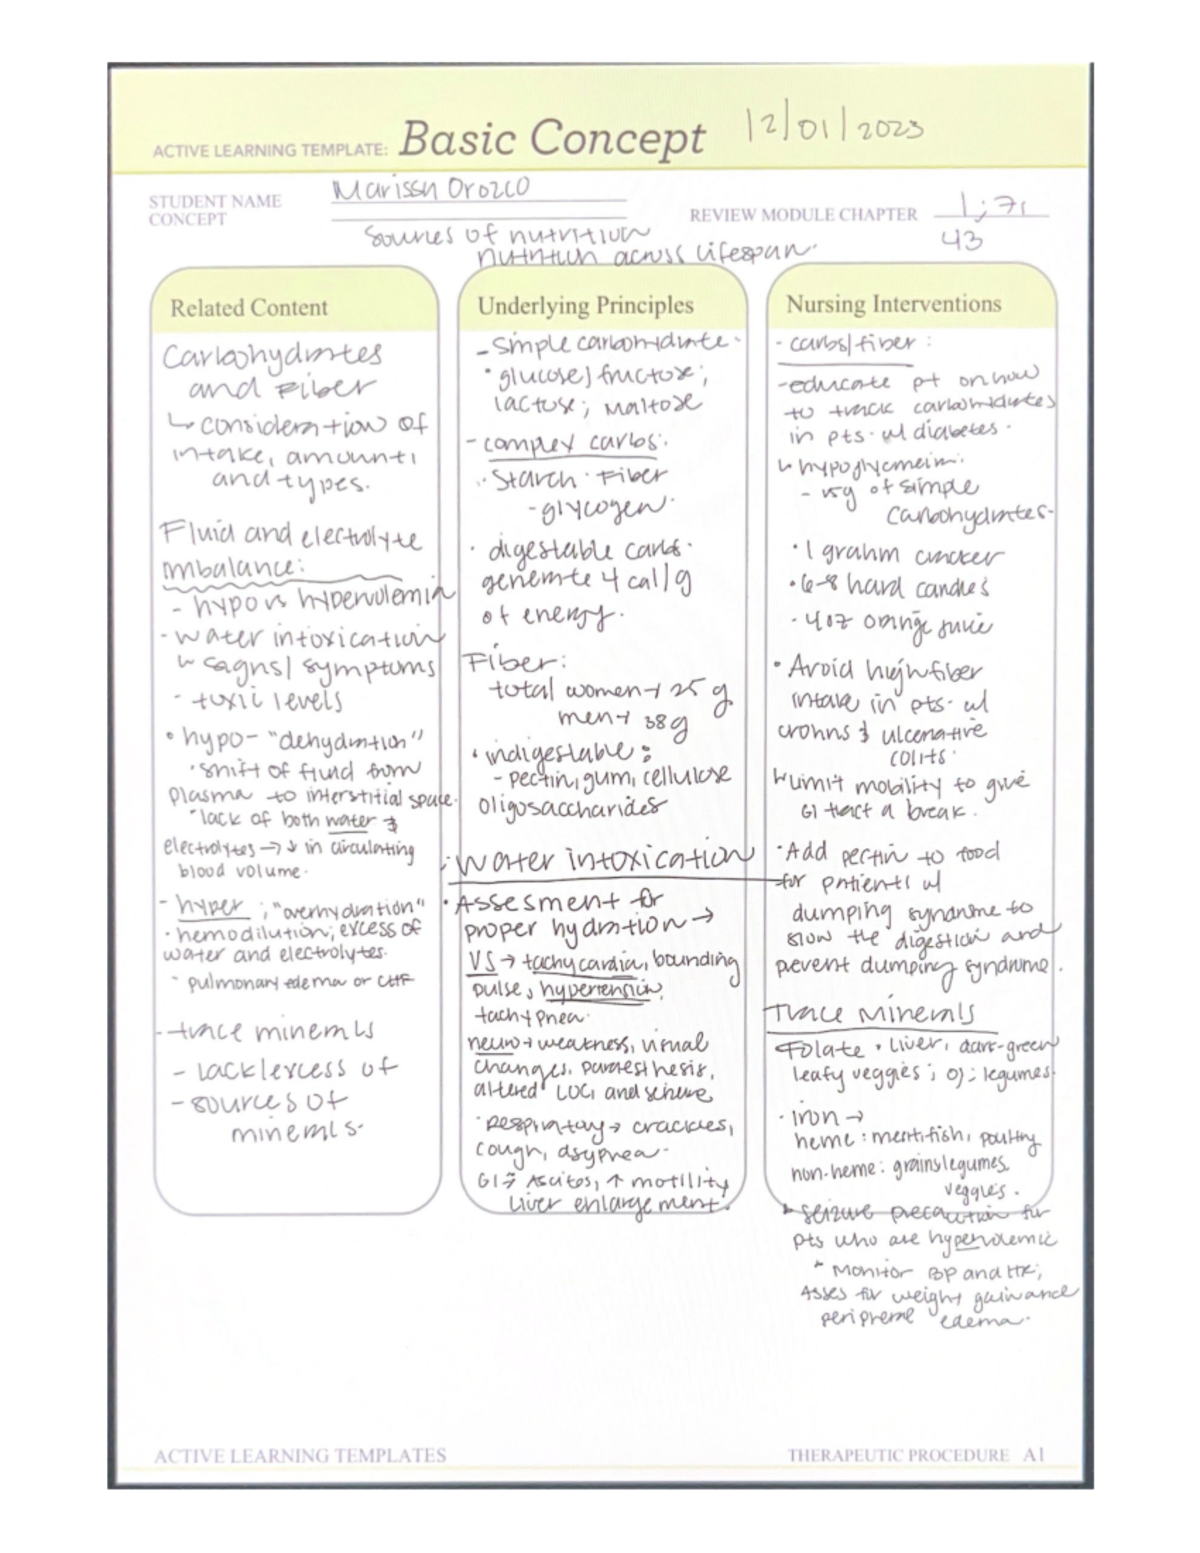 ACTIVE LEARNING TEMPLATE: Basic Concept 12/01/2023
STUDENT NAME Marissa Orozco
CONCEPT
REVIEW MODULE CHAPTER 1; 71
43
Sources of nutrition
nutrition across lifespan.
Related Content
Carbohydrates
and Fiber
↳ consideration of
intake, amount,
and types.
Fluid and electrolyte
imbalance:
- hypo vs hypervolemia
- water intoxication
↳ sagns/ symptoms
- toxic levels
• hypo- "dehydration"
• shift of fluid from
plasma to interstitial space.
• lack of both water &
electrolytes → ↓ in circulating
blood volume.
- hyper ; "overhydration"
• hemodilution; excess of
water and electrolytes.
- pulmonary edema or CHF
- trace minerals
- lack/excess of
- sources of
minerals.
Underlying Principles
- Simple carbohydrate.
• glucose/ fructose;
lactose; Maltose
- complex carbs:
• Starch • Fiber
- glycogen.
• digestable carbs.
generate 4 cal/g
of energy.
Fiber:
total women → 25 g
men → 38g
• indigestable:
- pectin, gum, cellulose
oligosaccharides
• Water intoxication
• Assesment for
proper hydration →
VS → tachycardia, bounding
pulse, hypertension,
tachypnea.
neuro → weakness, visual
changes, paraesthesis,
altered LOC, and seizure
• Respiratory → crackles,
cough, dsypnea.
GI → Ascites, ↑ motility
liver enlargement.
Nursing Interventions
- carbs/fiber:
- educate pt on how
to track carbohydrates
in pts. w/ diabetes.
↳ hypoglycemia:
- 15g of simple
Carbohydrates.
• 1 grahm cracker
• 6-8 hard candies
• 4oz orange juice
• Avoid high fiber
intake in pts. w/
crohns & ulcerative
colits.
↳ limit mobility to give
GI tract a break.
• Add pectin to food
for patients w/
dumping syndrome to
slow the digestion and
prevent dumping syndrome.
Trace Minerals
Folate • liver, dark-green
leafy veggies; OJ; legumes.
• iron →
heme: meat, fish, poultry
non-heme: grains, legumes,
veggies.
seizure precaution for
pts who are hypervolemic
Monitor BP and HR;
Asses for weight gain and
edema.
ACTIVE LEARNING TEMPLATES
THERAPEUTIC PROCEDURE A1